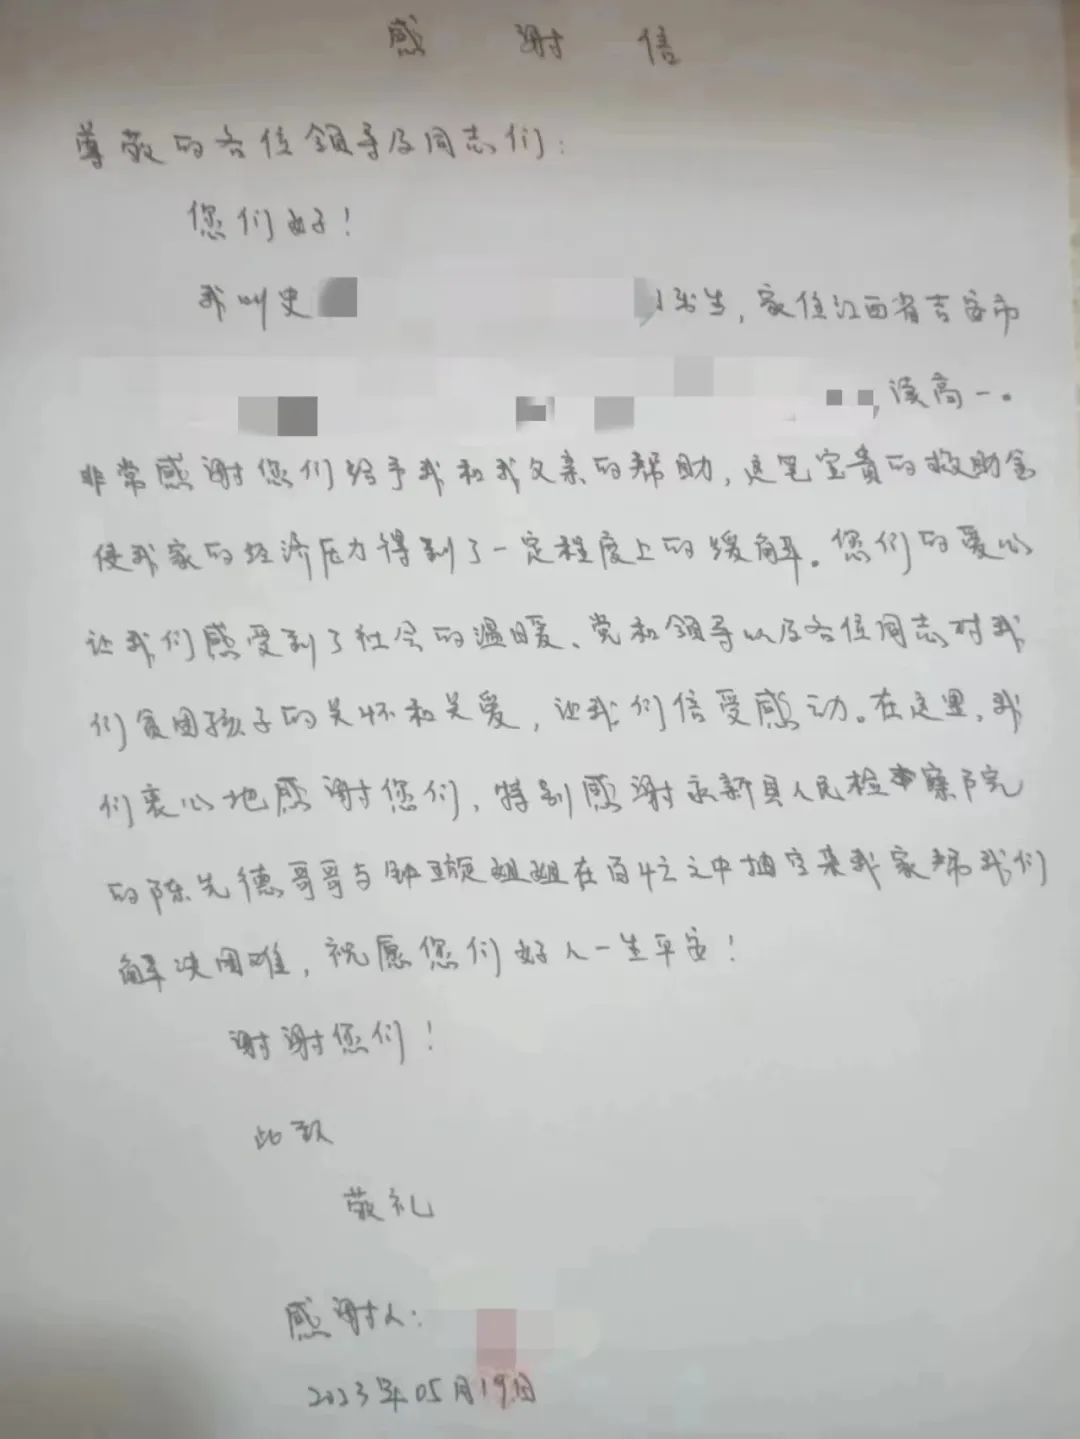 感 谢 信
尊敬的各位领导及同志们:
您们好!
我叫史
出生,家住江西省吉安市
,读高一。
非常感谢您们给予我和我父亲的帮助,这笔宝贵的救助金
使我家的经济压力得到了一定程度上的缓解。您们的爱心
让我们感受到了社会的温暖、党和领导以及各位同志对我
们贫困孩子的关怀和关爱,让我们倍受感动。在这里,我
们衷心地感谢您们,特别感谢永新县人民检察院
的陈先德哥哥与钟 姐姐在百忙之中抽空来我家帮我们
解决困难,祝愿您们好人一生平安!
谢谢您们!
此致
敬礼
感谢人:
2023年05月19日